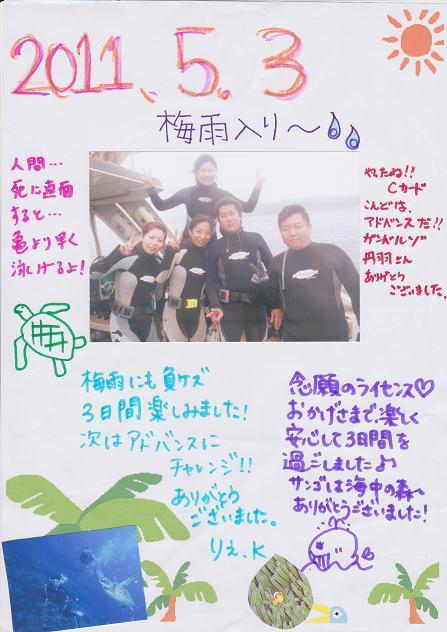 2011、5.3
梅雨入り〜
人間…
死に直面
すると…
亀より早く
泳げるよ!
やったね!!
Cカード
こんどは、
アドバンスだ!!
ガンバルゾ
丹羽さん
ありがとう
ございました。
梅雨にも負ケズ
3日間楽しみました!
次はアドバンスに
チャレンジ!!
ありがとう
ございました。
りえ.K
念願のライセンス♡
おかげさまで、楽しく
安心して3日間を
過ごしました♪
サンゴは海中の森へ
ありがとうございました!